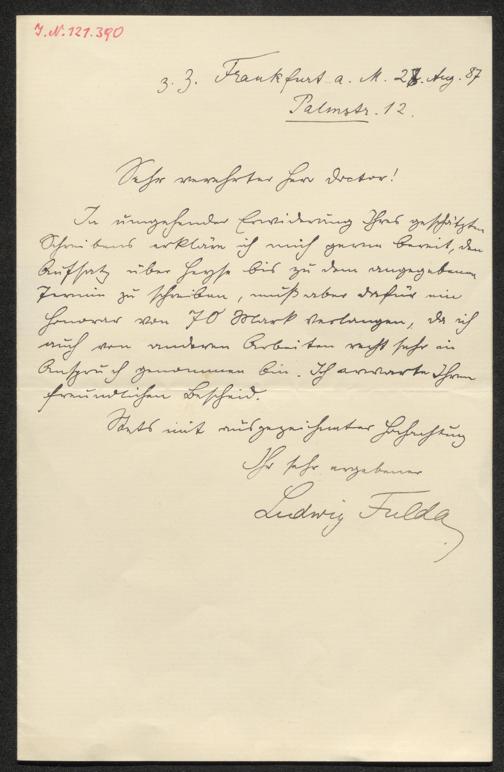 J.N. 121.390
z. Z. Frankfurt a. M. 28. Aug. 87
Palmstr. 12.
Sehr verehrter Herr Doctor!
In umgehender Erwiderung Ihres geschätzten
Schreibens erkläre ich mich gerne bereit, den
Aufsatz über Heyse bis zu dem angegebenen
Termin zu schreiben, muß aber dafür ein
Honorar von 70 Mark verlangen, da ich
auch von anderen Arbeiten recht sehr in
Anspruch genommen bin. Ich erwarte Ihren
freundlichen Bescheid.
Stets mit ausgezeichneter Hochachtung
Ihr sehr ergebener
Ludwig Fulda